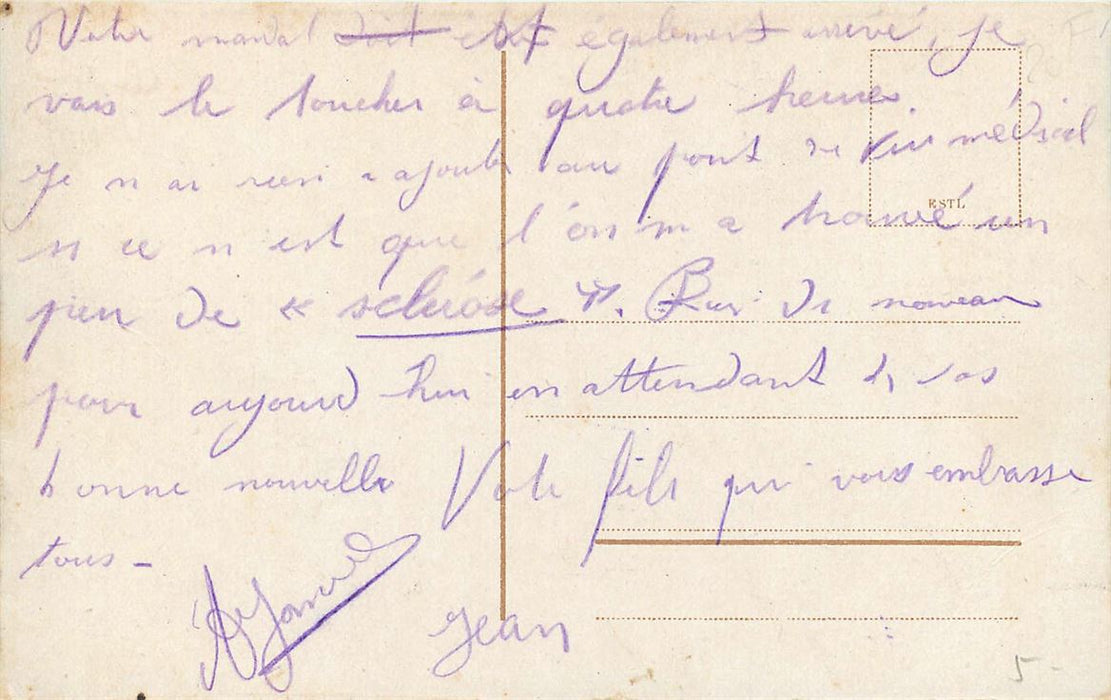 Votre mandat doit est également arrivé, je
vais le toucher à quatre heures.
Je n ai rien a ajouté au point de vue médical
ESTL
si ce n est que l'on m a trouvé un
peu de « sclérose ». Rien de nouveau
pour aujourd hui en attendant de vos
bonne nouvelle Votre fils qui vous embrasse
tous -
Jean
5 -